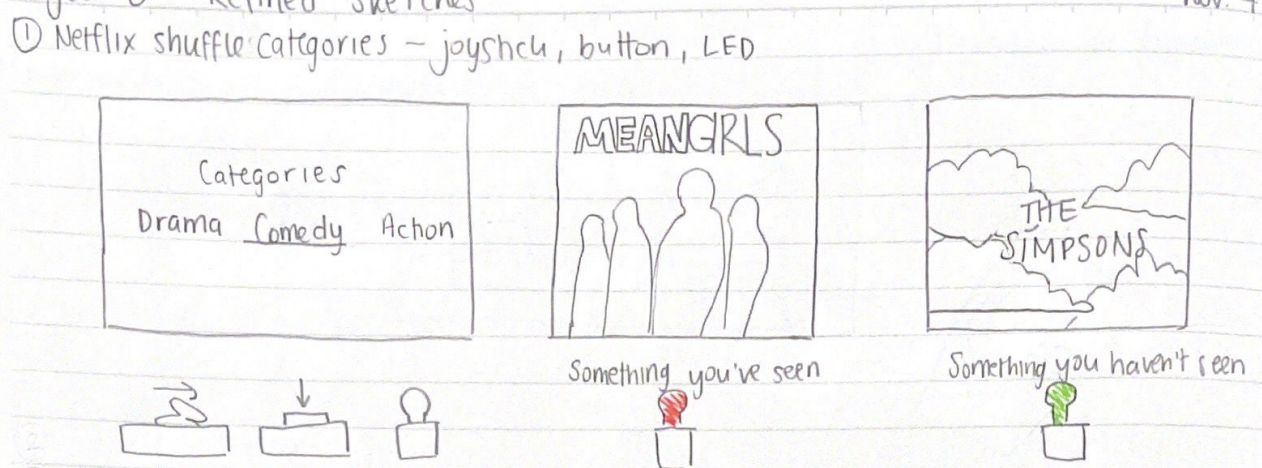 Refined sketches
Nov. 7
① Netflix shuffle categories – joystick, button, LED
Categories
Drama Comedy Action
MEANGRLS
THE
SIMPSONS
Something you've seen
Something you haven't seen